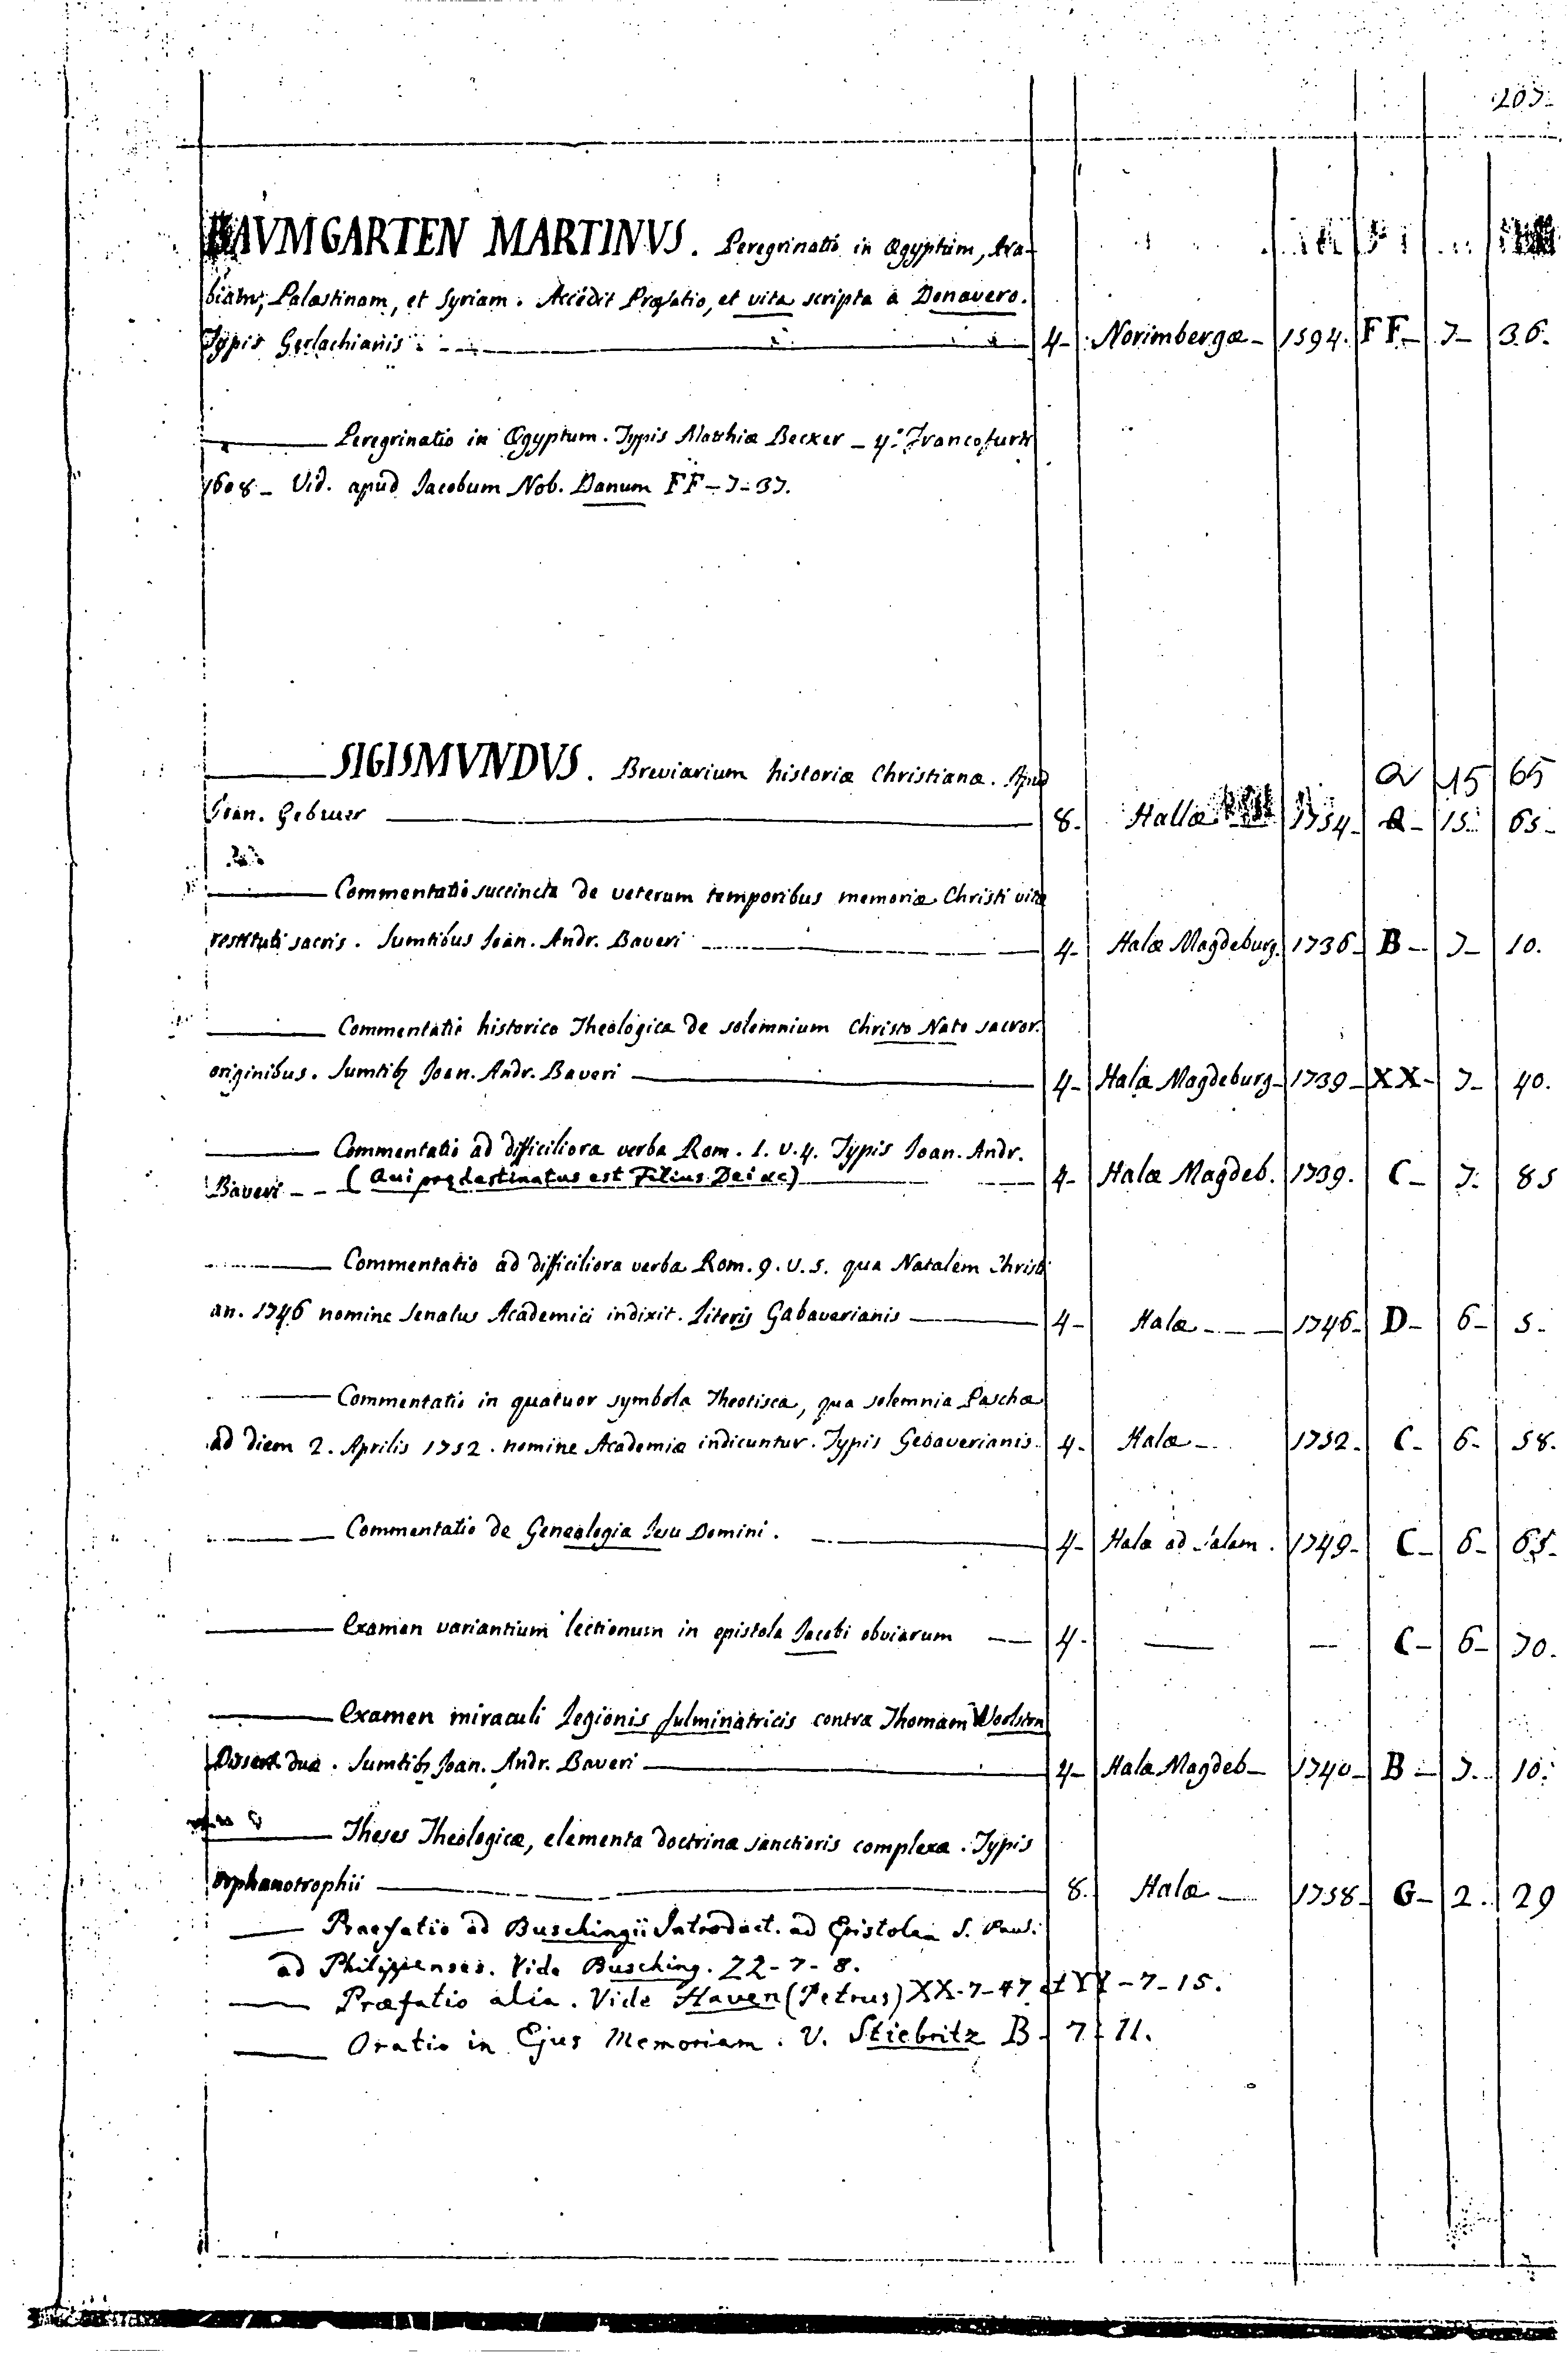 207.
BAVMGARTEN MARTINVS. Peregrinatio in Ægyptum, Ara-
biam, Palæstinam, et Syriam. Accedit Præfatio, et vita scripta à Donavero.
Typis Gerlachianis 4- Norimbergæ- 1594. FF- 7- 36.
Peregrinatio in Ægyptum. Typis Matthiæ Becker - 4.º Francofurti
1608- Vid. apud Jacobum Nob. Danum FF-7-37.
SIGISMVNDVS. Breviarium historiæ Christianæ. Apud Q 15 65
Joan. Gebruer 8. Hallæ 1754- Q- 15. 65-
Commentatio succincta de veterum temporibus memoriæ Christi vitæ
restituti sacris. Sumtibus Joan. Andr. Baveri 4- Halæ Magdeburg. 1736- B- 7- 10.
Commentatio historico Theologica de solemnium Christo Nato sacror.
originibus. Sumtibz Joan. Andr. Baveri 4- Halæ Magdeburg- 1739- XX- 7- 40.
Commentatio ad difficiliora verba Rom. 1. v. 4. Typis Joan. Andr.
Baveri - - (Qui prędestinatus est Filius Dei &c) 4- Halæ Magdeb. 1739. C- 7. 85
Commentatio ad difficiliora verba Rom. 9. v. 5. qua Natalem Christi
an. 1746 nomine Senatus Academici indixit. Literis Gabaverianis 4- Halæ - - - 1746- D- 6- 5-
Commentatio in quatuor symbola Theotisca, qua solemnia Paschæ
ad diem 2. Aprilis 1752. nomine Academiæ indicuntur. Typis Gebaverianis. 4- Halæ- 1752- C- 6- 58.
Commentatio de Genealogia Jesu Domini. 4- Halæ ad Salam. 1749- C- 6- 65-
Examen variantium lectionum in epistola Jacobi obviarum 4- — — C- 6- 70.
Examen miraculi Legionis fulminatricis contra Thomam Woolston
Dissert. duæ. Sumtibz Joan. Andr. Baveri 4- Halæ Magdeb- 1740- B- 7. 10.
Theses Theologicæ, elementa doctrinæ sanctioris complexæ. Typis
Orphanotrophii 8. Halæ - 1758- G- 2. 29
Praefatio ad Buschingii Introduct. ad Epistolam S. Paul.
ad Philippenses. Vide Busching. ZZ-7-8.
Præfatio alia. Vide Haven (Petrus) XX-7-47 et YY-7-15.
Oratio in Ejus Memoriam. V. Stiebritz B-7-11.